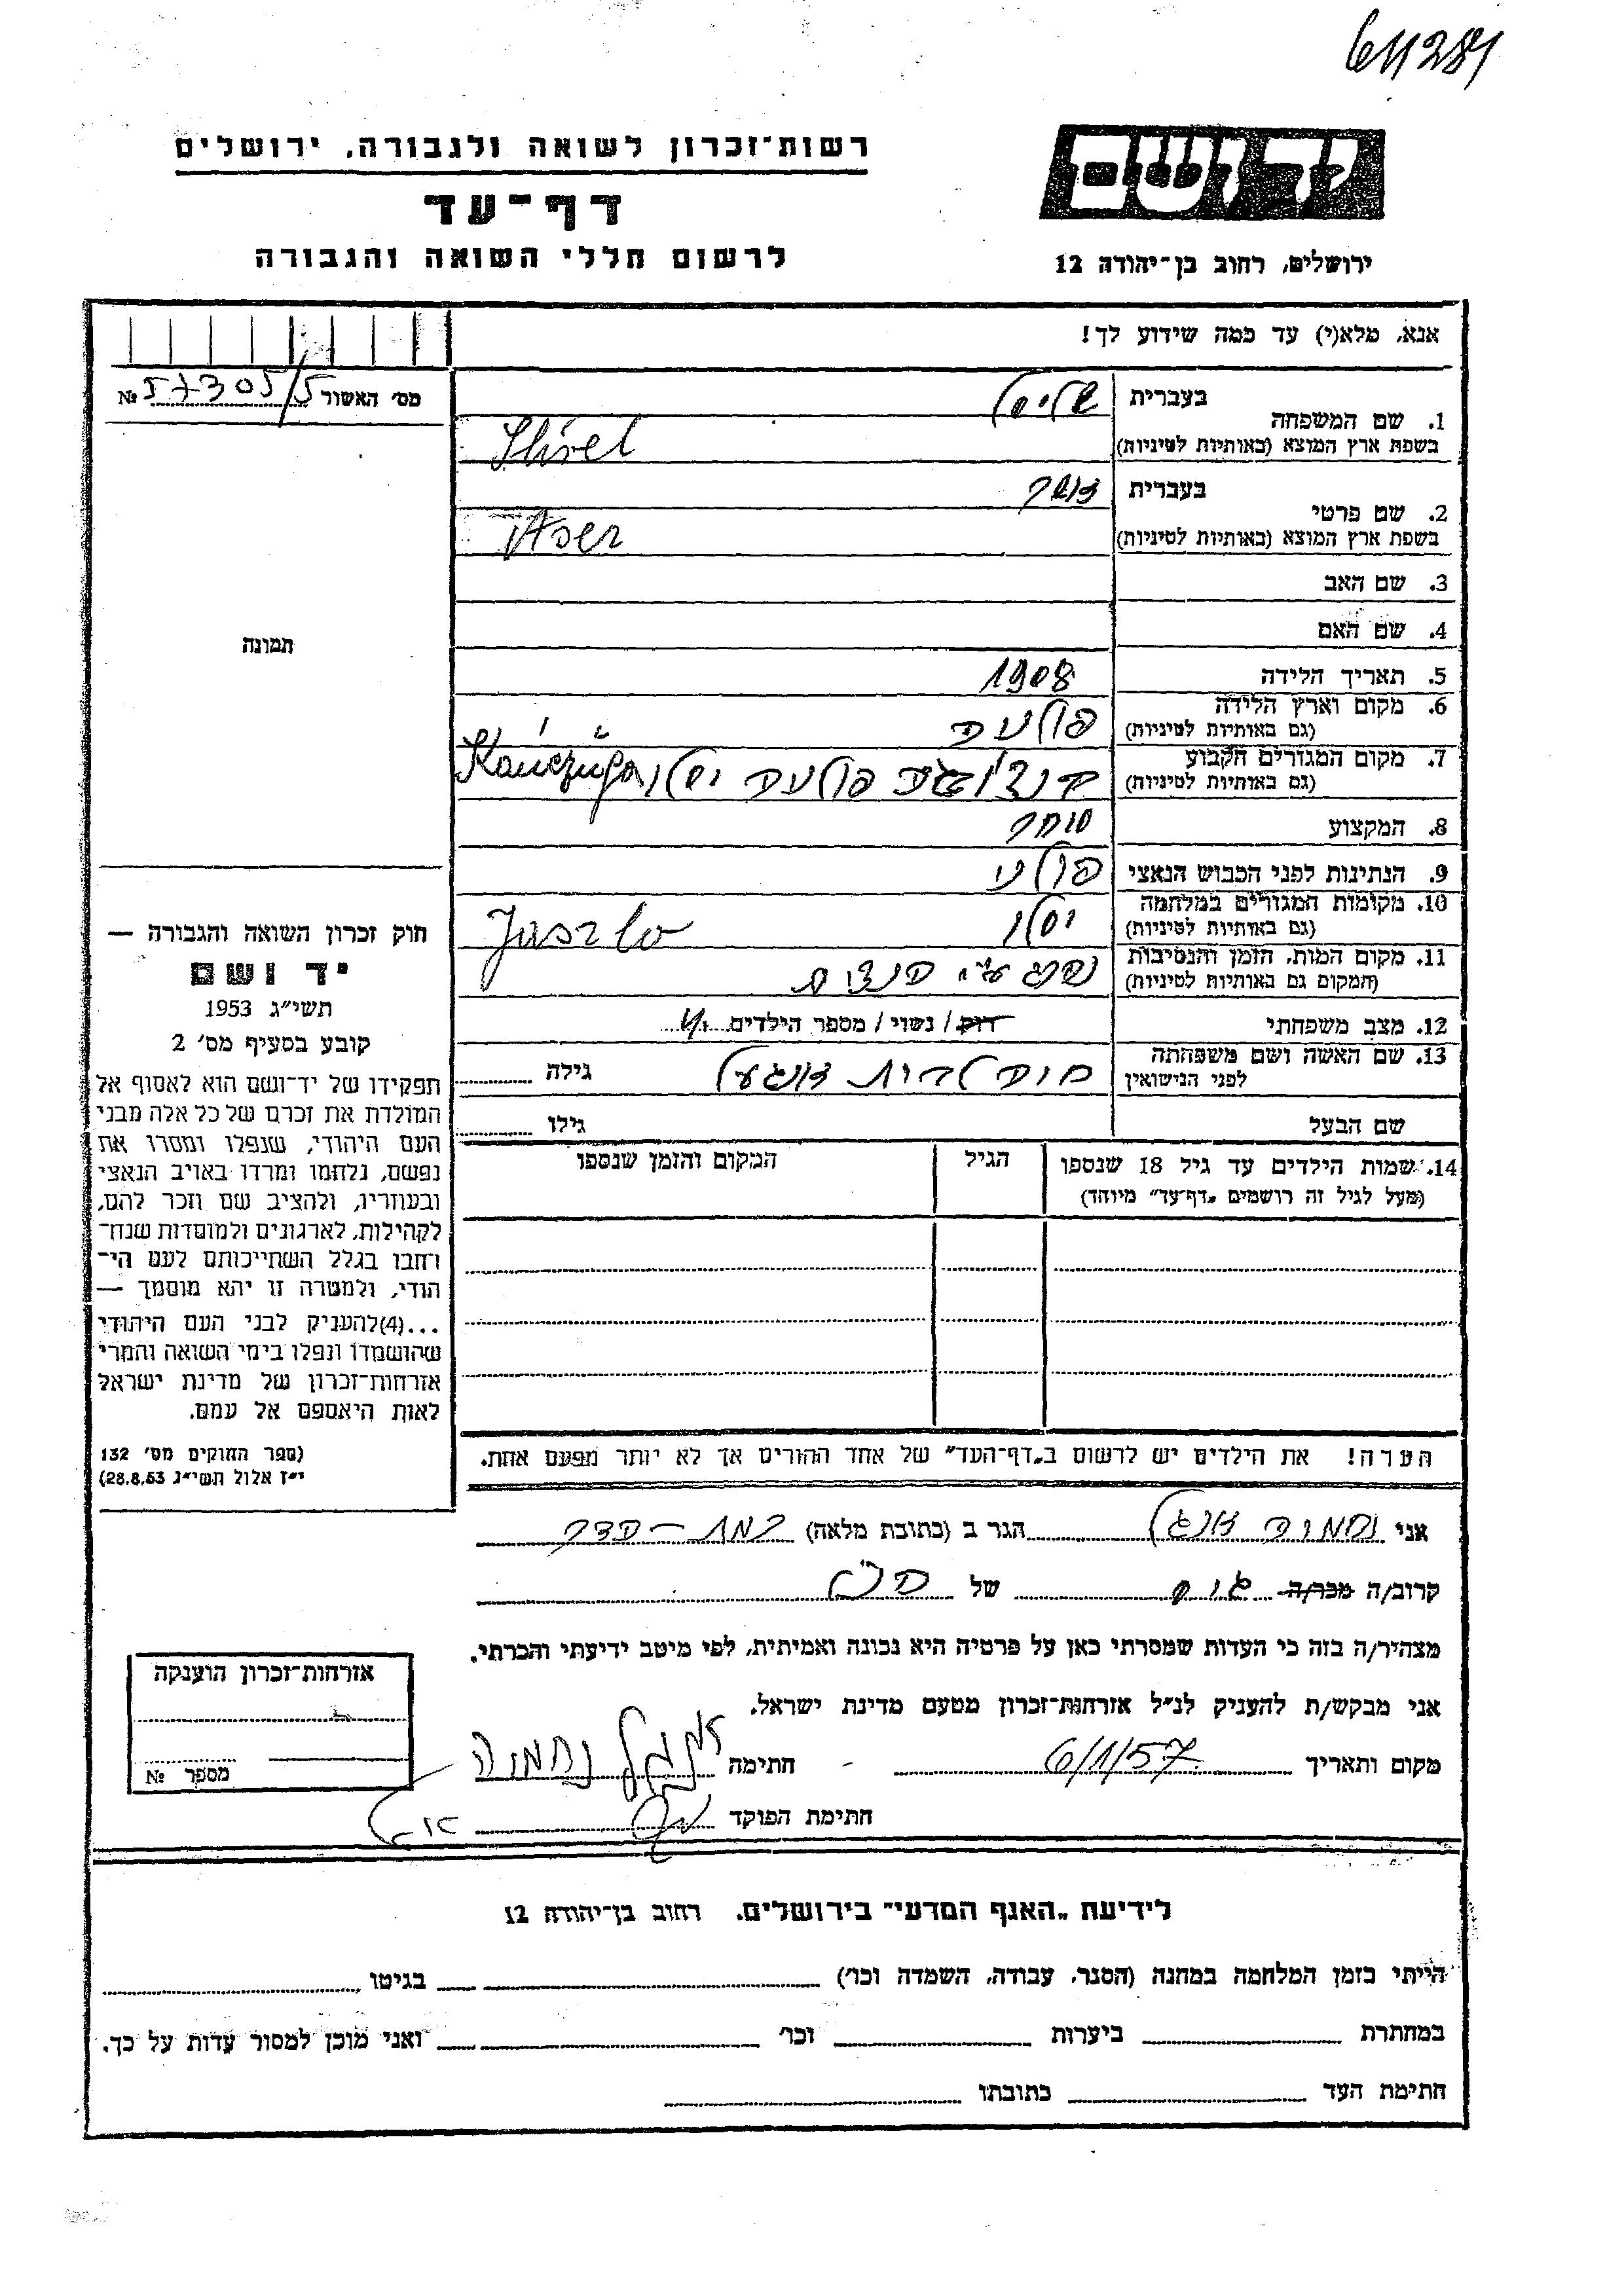 611281
רשות־זכרון לשואה ולגבורה, ירושלים
דף־עד
לרשום חללי השואה והגבורה
יד ושם
ירושלים, רחוב בן־יהודה 12
אנא, מלא(י) עד כמה שידוע לך!
מס' האשור 57305/5 №
1. שם המשפחה
בעברית
בשפת ארץ המוצא (באותיות לטיניות)
2. שם פרטי
בעברית אשר
בשפת ארץ המוצא (באותיות לטיניות) Aser
3. שם האב
4. שם האם
5. תאריך הלידה 1908
6. מקום וארץ הלידה
(גם באותיות לטיניות)
7. מקום המגורים הקבוע
(גם באותיות לטיניות) Kańczuga
8. המקצוע סוחר
9. הנתינות לפני הכבוש הנאצי פולני
10. מקומות המגורים במלחמה יסלו
(גם באותיות לטיניות) Jaszlo
11. מקום המות, הזמן והנסיבות
(המקום גם באותיות לטיניות)
12. מצב משפחתי רוק / נשוי / מספר הילדים
13. שם האשה ושם משפחתה
לפני הנישואין
גילה
שם הבעל
גילו
14. שמות הילדים עד גיל 18 שנספו
(מעל לגיל זה רושמים „דף־עד" מיוחד)
הגיל
המקום והזמן שנספו
הערה! את הילדים יש לרשום ב„דף־העד" של אחד ההורים אך לא יותר מפעם אחת.
תמונה
חוק זכרון השואה והגבורה —
יד ושם
תשי"ג 1953
קובע בסעיף מס' 2
תפקידו של יד־ושם הוא לאסוף אל
המולדת את זכרם של כל אלה מבני
העם היהודי, שנפלו ומסרו את
נפשם, נלחמו ומרדו באויב הנאצי
ובעוזריו, ולהציב שם וזכר להם,
לקהילות, לארגונים ולמוסדות שנח־
רחבו בגלל השתייכותם לעם הי־
הודי, ולמטרה זו יהא מוסמך —
...(4)להעניק לבני העם היהודי
שהושמדו ונפלו בימי השואה והמרי
אזרחות־זכרון של מדינת ישראל
לאות היאספם אל עמם.
(ספר החוקים מס' 132
י"ז אלול תשי"ג 28.8.53)
אני נחמיה אנגל הגר ב (כתובת מלאה)
קרוב/ה מכר/ה גיס של
מצהיר/ה בזה כי העדות שמסרתי כאן על פרטיה היא נכונה ואמיתית, לפי מיטב ידיעתי והכרתי.
אני מבקש/ת להעניק לנ"ל אזרחות־זכרון מטעם מדינת ישראל.
מקום ותאריך 6/1/57 חתימה אנגל נחמיה
חתימת הפוקד
אזרחות־זכרון הוענקה
מספר №
לידיעת „האגף המדעי" בירושלים, רחוב בן־יהודה 12
הייתי בזמן המלחמה במחנה (הסגר, עבודה, השמדה וכו') בגיטו
במחתרת ביערות וכו' ואני מוכן למסור עדות על כך.
חתימת העד כתובתו